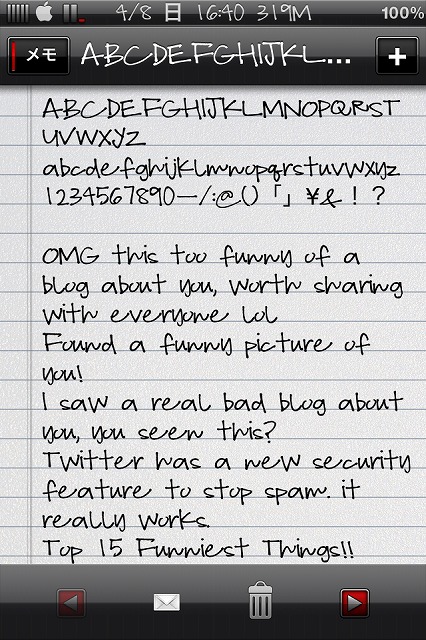 4/8 日 16:40 319M 100%
メモ ABCDEFGHIJKL... +
ABCDEFGHIJKLMNOPQRST
UVWXYZ
abcdefghijklmnopqrstuvwxyz
1234567890—/:@()「」¥&！？
OMG this too funny of a
blog about you, worth sharing
with everyone lol
Found a funny picture of
you!
I saw a real bad blog about
you, you seen this?
Twitter has a new security
feature to stop spam. it
really works.
Top 15 Funniest Things!!